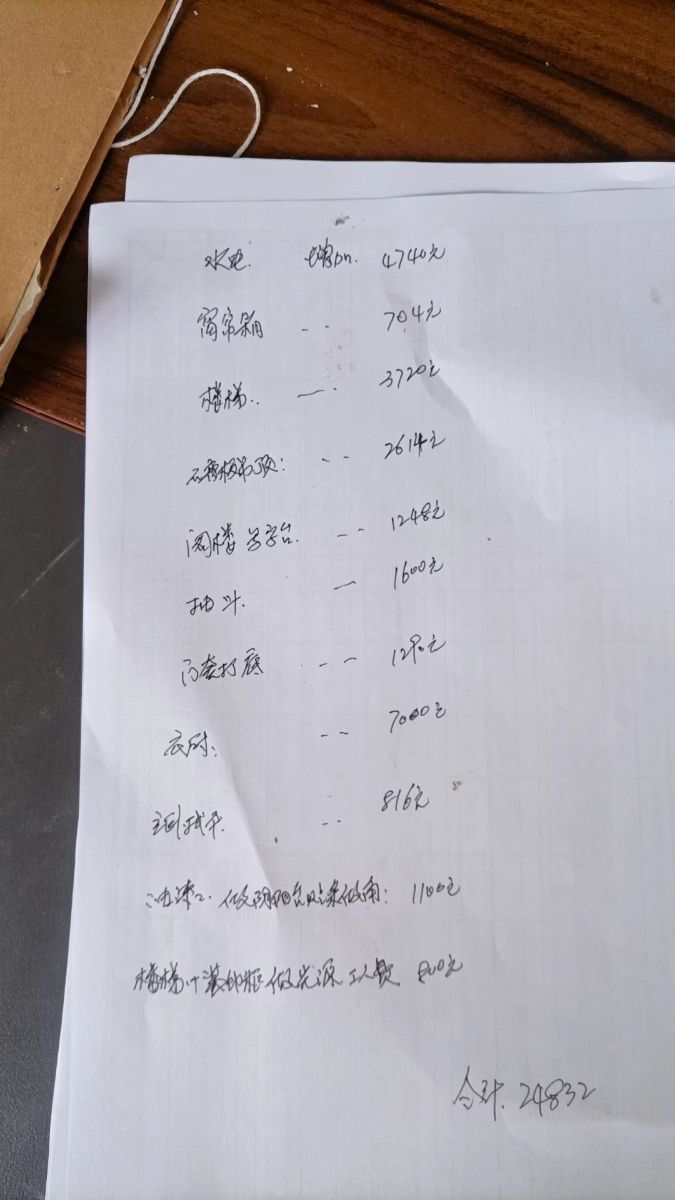 水电. 增加. 4740元
窗帘箱 -- 704元
楼梯.. — 3720元
石膏板吊顶: -- 2614元
阁楼写字台. -- 1248元
抽斗. — 1600元
门套打底 -- 1290元
衣柜: -- 7000元
主卧找平. -- 816元
油漆工. 做阴阳 做角: 1100元
楼梯.+装饰柜做光源工人费 800元
合计. 24832